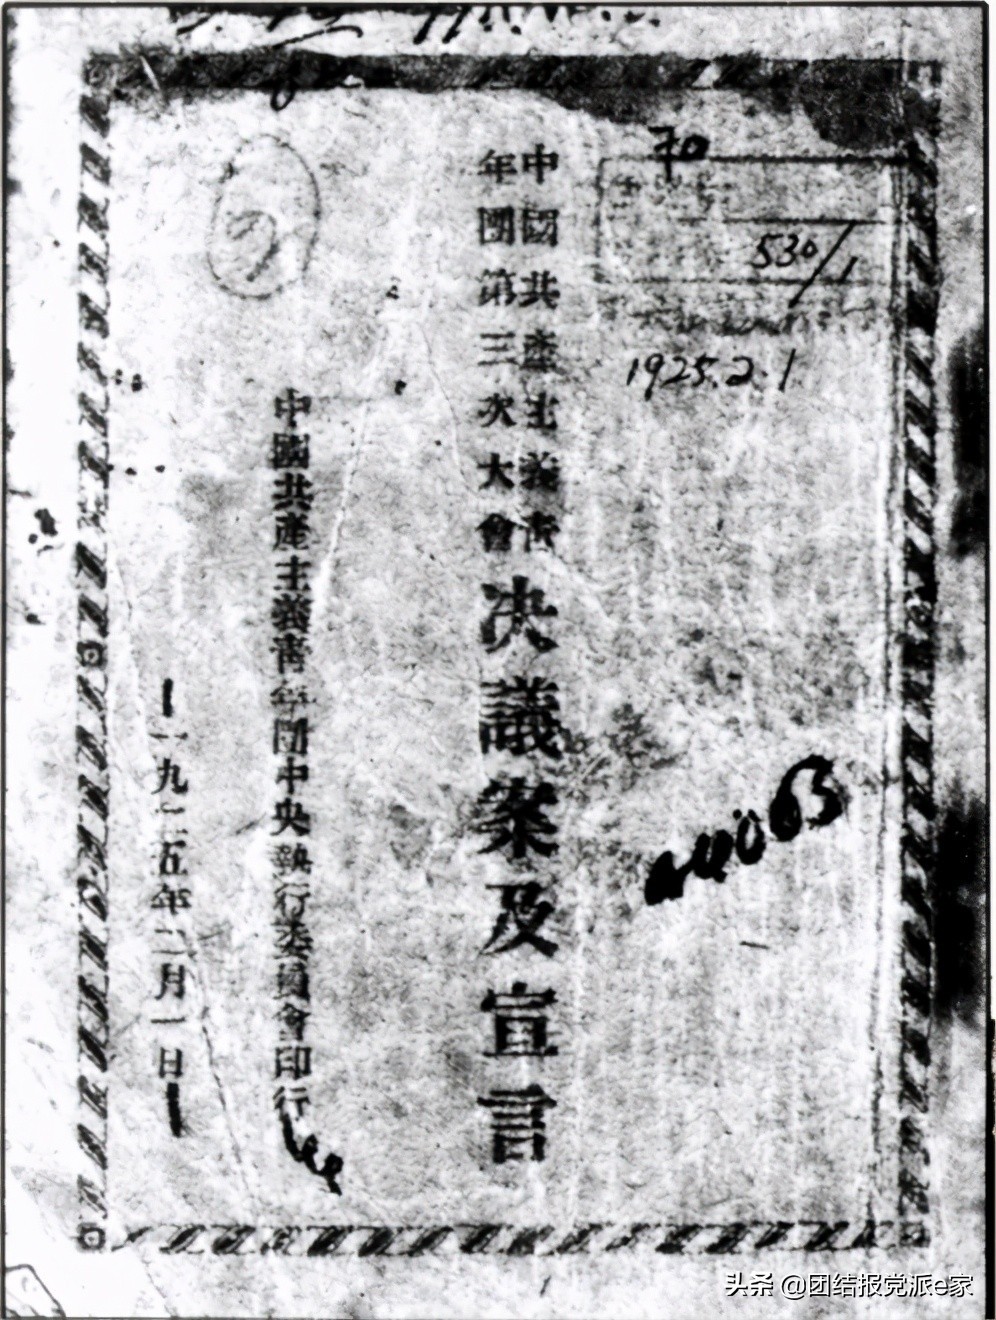 530/1
1925.2.1
中國共產主義青
年團第三次大會
決議案及宣言
中國共產主義靑年團中央執行委員會印行
一九二五年二月一日
头条 @团结报党派e家